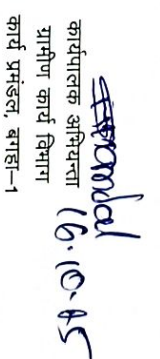 16.10.15
कार्यपालक अभियन्ता
ग्रामीण कार्य विभाग
कार्य प्रमंडल, बगहा-1